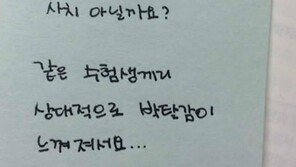 사치 아닐까요?
같은 수험생끼리
상대적으로 박탈감이
느껴져서요...